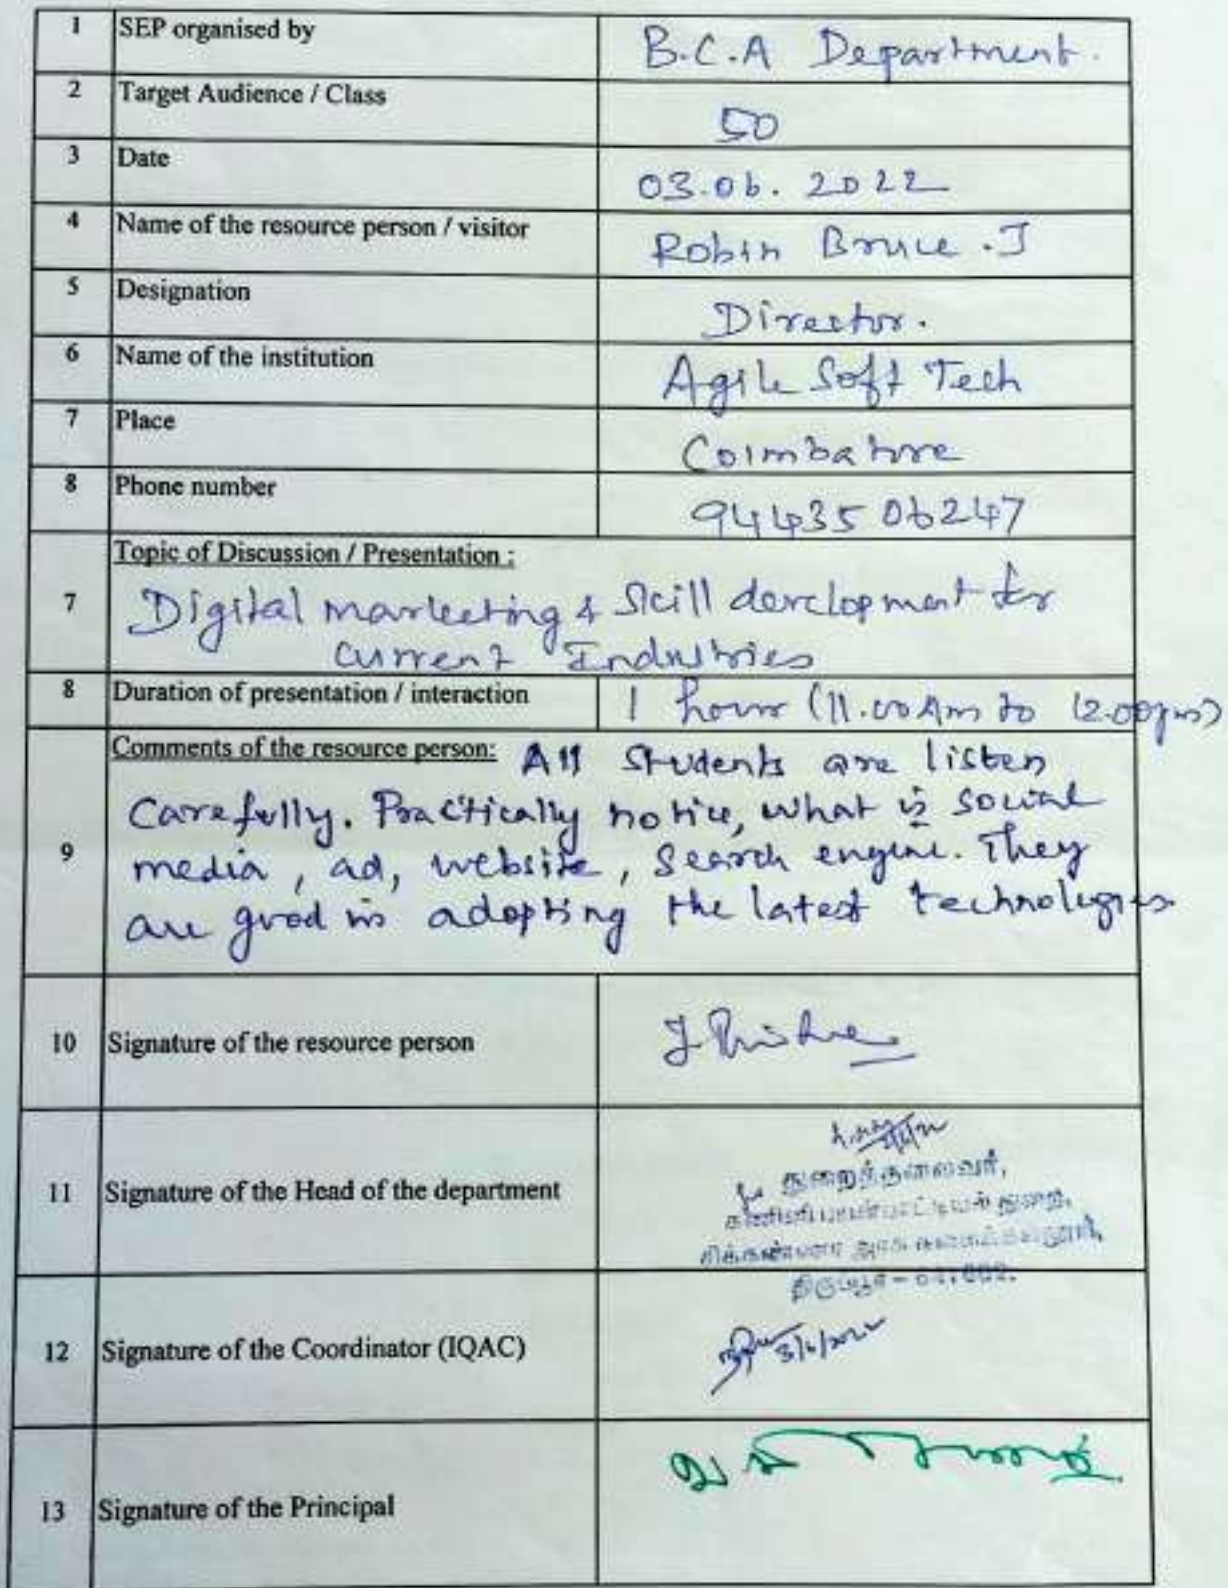 1 SEP organised by B.C.A Department.
2 Target Audience / Class 50
3 Date 03.06.2022
4 Name of the resource person / visitor Robin Bruce .J
5 Designation Director.
6 Name of the institution Agile Soft Tech
7 Place Coimbatore
8 Phone number 94435 06247
Topic of Discussion / Presentation :
7 Digital marketing & Skill development for
current Industries
8 Duration of presentation / interaction 1 hour (11.00Am to 12.00pm)
Comments of the resource person: All Students are listen
Carefully. Practically notice, what is social
9 media, ad, website, Search engine. They
are good in adopting the latest technologies
10 Signature of the resource person
துறைத்தலைவர்,
11 Signature of the Head of the department
துறை,
அரசு
திருப்பூர் -
12 Signature of the Coordinator (IQAC) 3/6/2022
13 Signature of the Principal